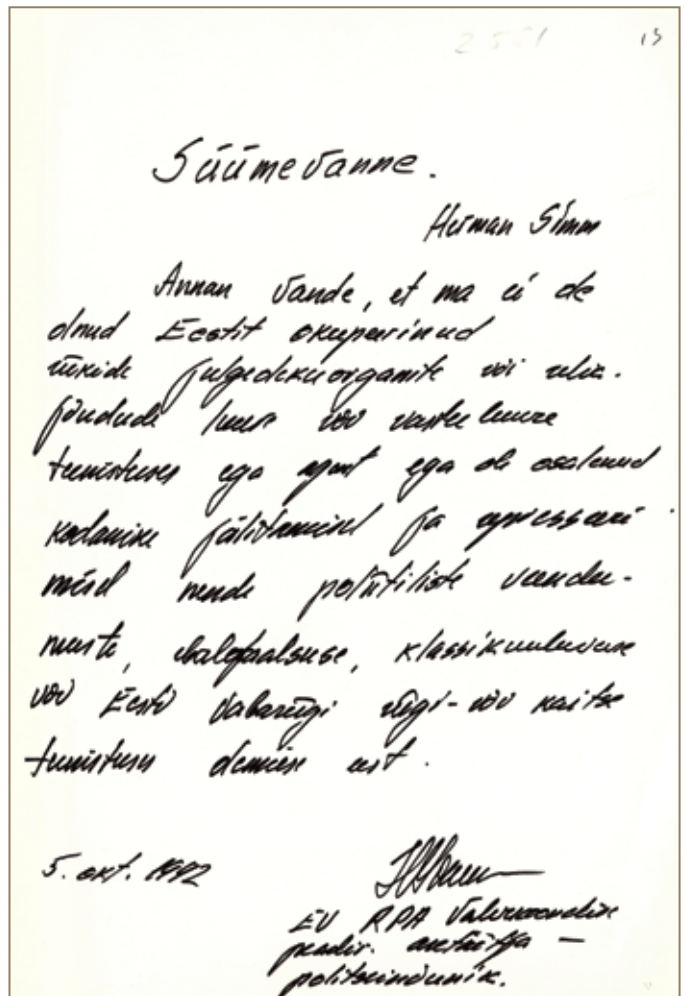 2551
15
Süümevanne.
Herman Simm
Annan vande, et ma ei ole
olnud Eestit okupeerinud
riikide julgeolekuorganite või relv.
jõudude luure või vastuluure
teenistuses ega agent ega ole osalenud
kodanike jälitamisel ja represseeri
misel nende poliitiliste veendu-
muste, ebalojaalsuse, klassikuuluvuse
või Eesti Vabariigi riigi- või kaitse
teenistuses olemise eest.
5. okt. 1992
EV RPA Valveosakonna
peadir. asetäitja –
politseinõunik.